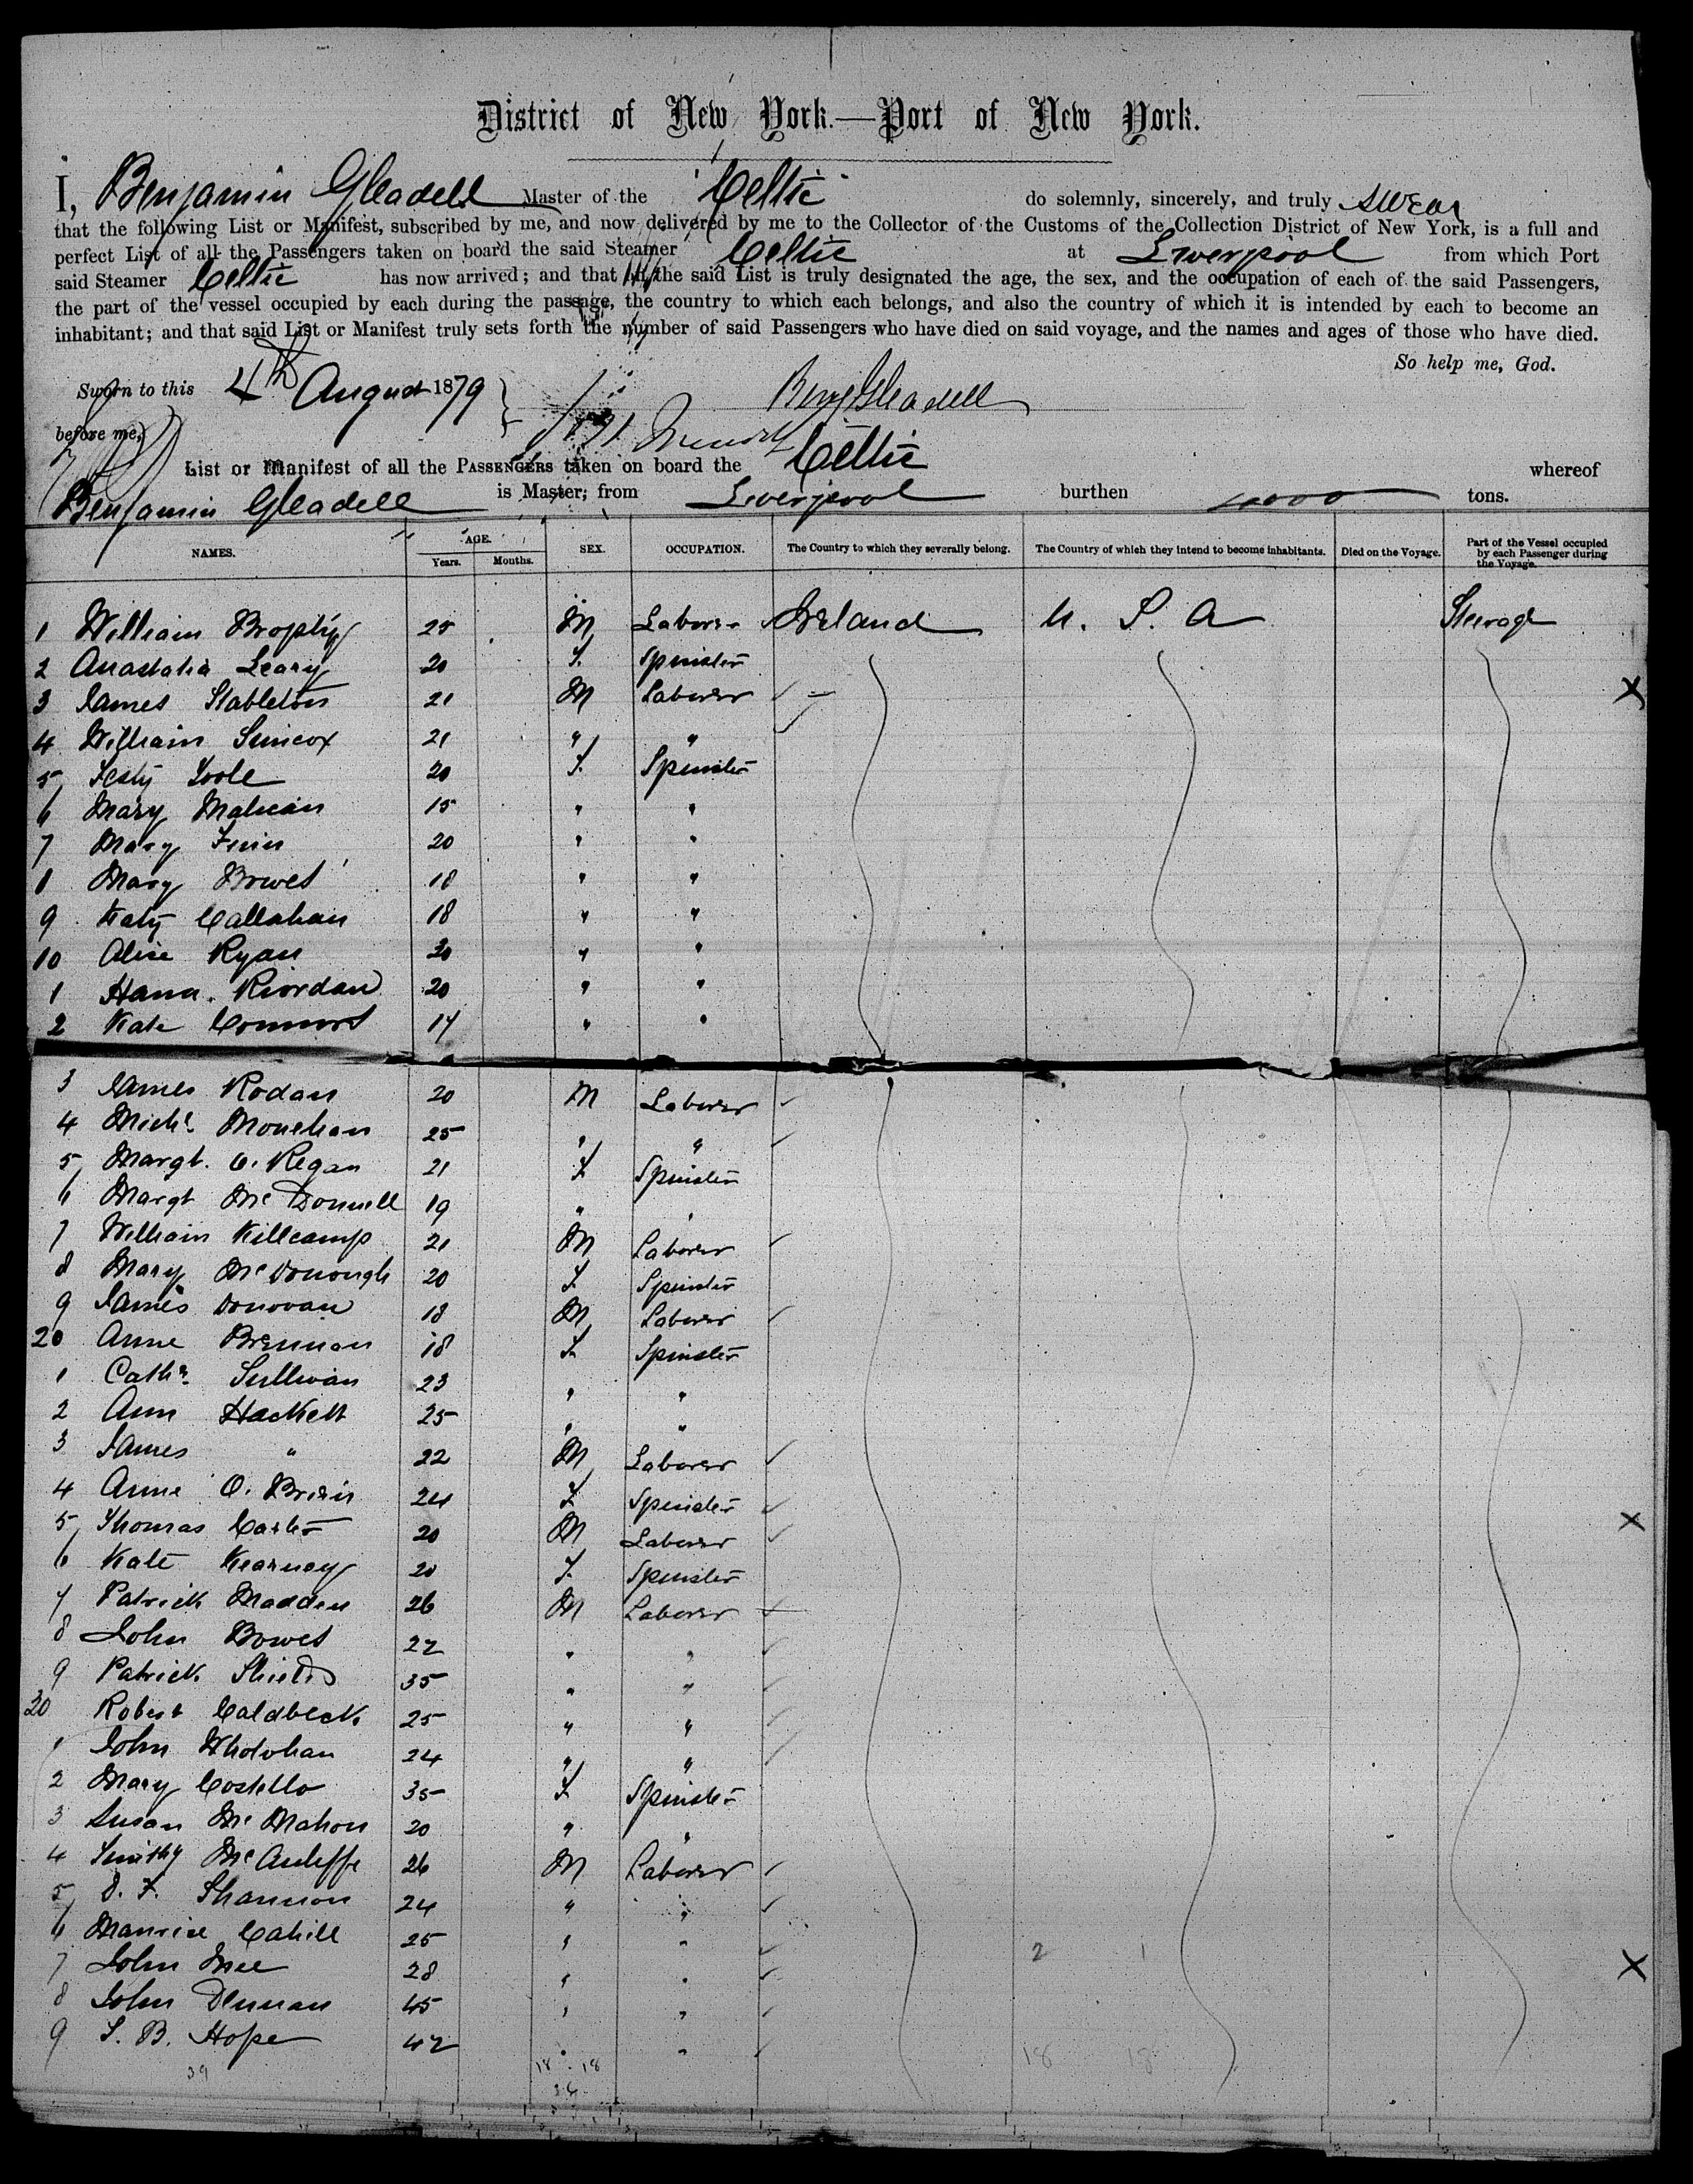 District of New York.—Port of New York.
I, Benjamin Gleadell Master of the Celtic do solemnly, sincerely, and truly swear
that the following List or Manifest, subscribed by me, and now delivered by me to the Collector of the Customs of the Collection District of New York, is a full and
perfect List of all the Passengers taken on board the said Steamer Celtic at Liverpool from which Port
said Steamer Celtic has now arrived; and that in the said List is truly designated the age, the sex, and the occupation of each of the said Passengers,
the part of the vessel occupied by each during the passage, the country to which each belongs, and also the country of which it is intended by each to become an
inhabitant; and that said List or Manifest truly sets forth the number of said Passengers who have died on said voyage, and the names and ages of those who have died.
So help me, God.
Sworn to this 4th August 1879
Benj Gleadell
before me,
List or Manifest of all the PASSENGERS taken on board the Celtic whereof
Benjamin Gleadell is Master; from Liverpool burthen 4000 tons.
NAMES. AGE. SEX. OCCUPATION. The Country to which they severally belong. The Country of which they intend to become inhabitants. Died on the Voyage. Part of the Vessel occupied by each Passenger during the Voyage.
Years. Months.
1 William Brophy 25 M Laborer Ireland U. S. A Steerage
2 Anastatia Leary 20 F. Spinster
3 James Stableton 21 M Laborer
4 William Simcox 21 " "
5 Festy Toole 20 F. Spinster
6 Mary 15 " "
7 Mary Finn 20 " "
8 Mary Bowes 18 " "
9 Katy Callahan 18 " "
10 Alice Ryan 30 " "
1 Hana. Riordan 20 " "
2 Kate Connors 17 " "
3 James Rodan 20 M Laborer
4 Michl. Monehan 25 " "
5 Margt. O. Regan 21 F Spinster
6 Margt McDonnell 19 " "
7 William Killcamp 21 M Laborer
8 Mary McDonough 20 F. Spinster
9 James Donovan 18 M Laborer
20 Anne Brennan 18 F. Spinster
1 Cathe. Sullivan 23 " "
2 Ann Hackett 25 " "
3 James " 22 M Laborer
4 Anne O. Brien 24 F Spinster
5 Thomas Carter 20 M Laborer
6 Kate Kearney 20 F. Spinster
7 Patrick Madden 26 M Laborer
8 John Bowes 22 " "
9 Patrick Shields 35 " "
30 Robert Caldbeck 25 " "
1 John 24 " "
2 Mary Costello 35 F Spinster
3 Susan McMahon 20 " "
4 McAuliffe 26 M Laborer
5 D. F. Shannon 24 " "
6 Maurice Cahill 25 " "
7 John Mee 28 " "
8 John Dennan 45 " "
9 T. B. Hope 42 " "
39 18 . 18 18 18
36